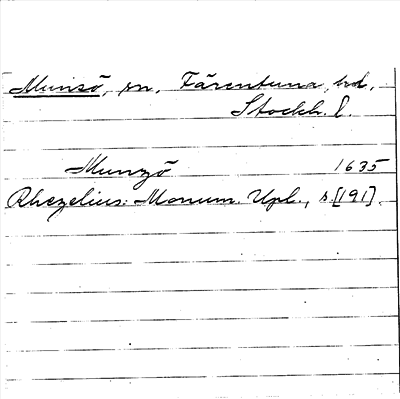 Munsö, sn, Färentuna hd,
Stockh. l.
Munzö 1635
Rhezelius: Monum. Upl., s. [191].